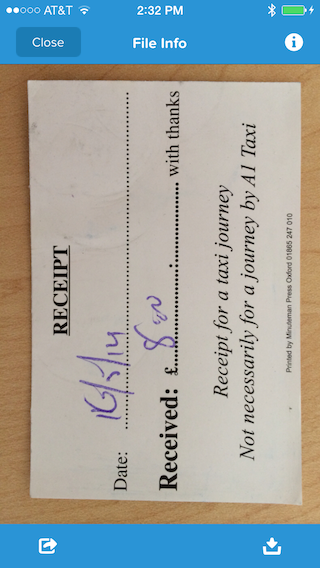 AT&T 2:32 PM
Close File Info
RECEIPT
Date: 16/5/14
Received: £ 8.00 with thanks
Receipt for a taxi journey
Not necessarily for a journey by A1 Taxi
Printed by Minuteman Press Oxford 01865 247 010